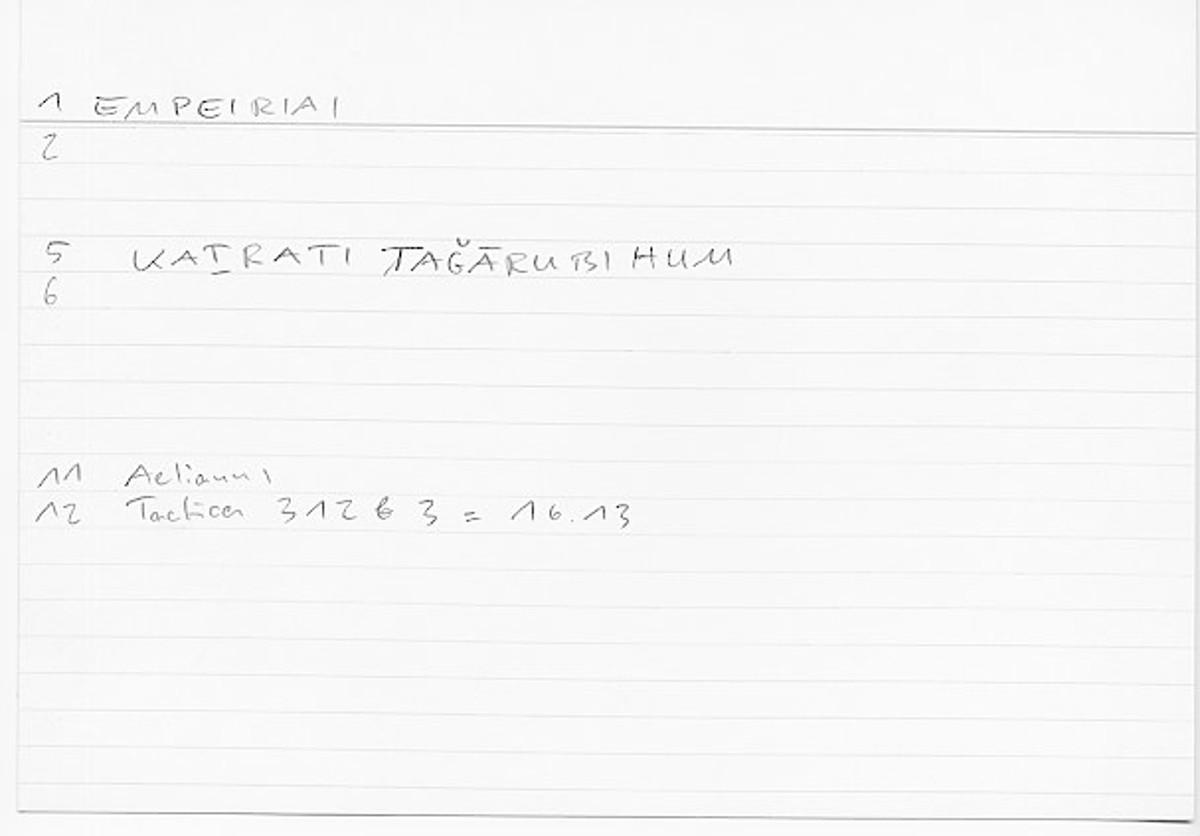 1 EMPEIRIAI
2
5 KAṮRATI TAǦĀRUBIHUM
6
11 Aeliani
12 Tactica 312 b 3 = 16.13